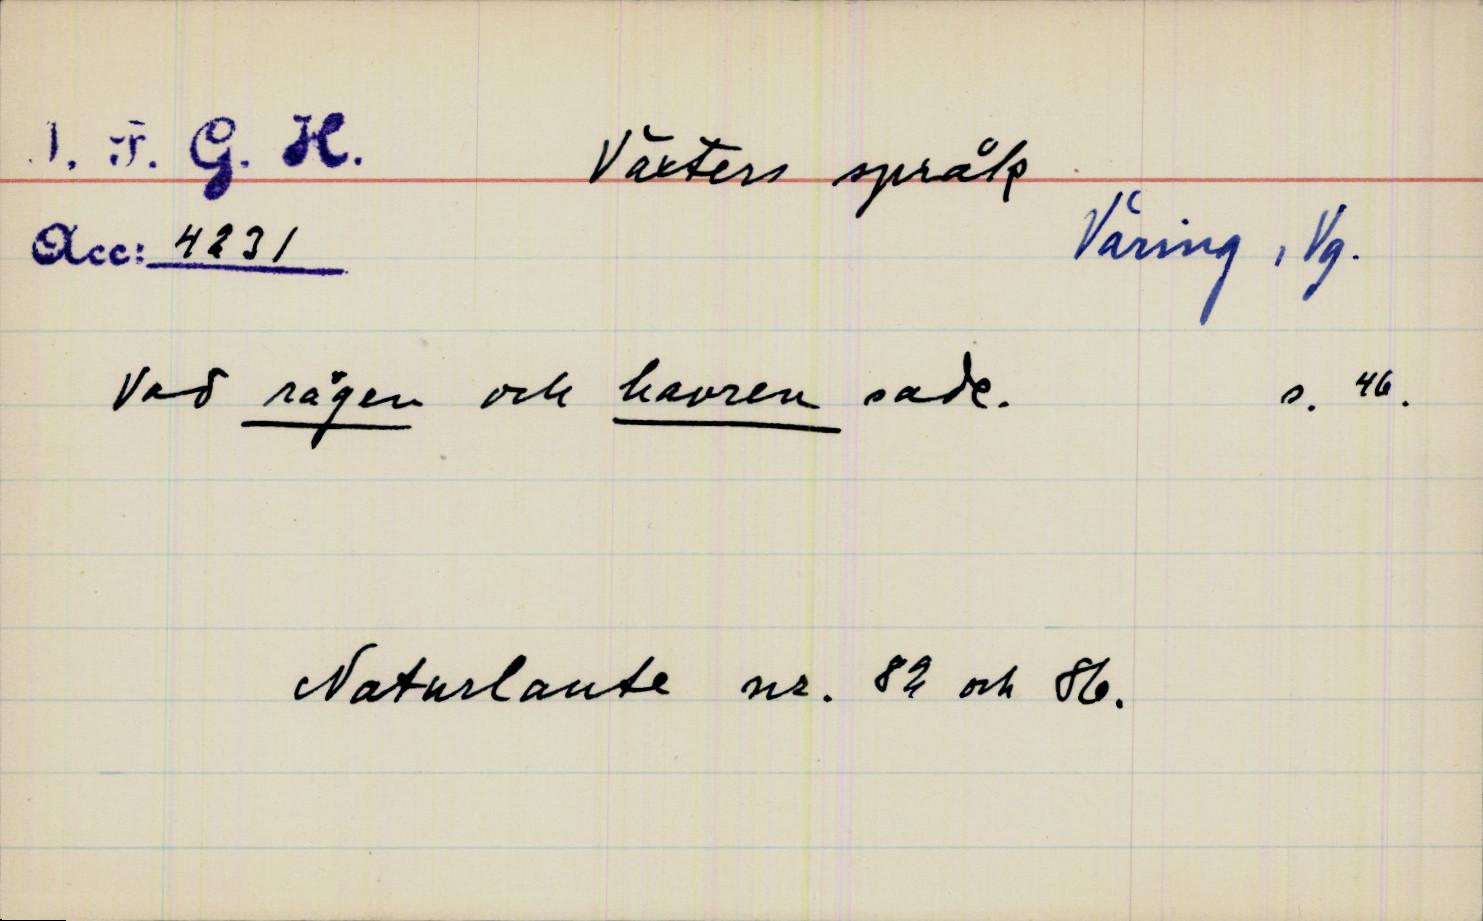 I. F. G. H.
Växters språk
Acc: 4231
Väring, Vg.
Vad rågen och havren sade. s. 46.
Naturlaute nr. 82 och 86.